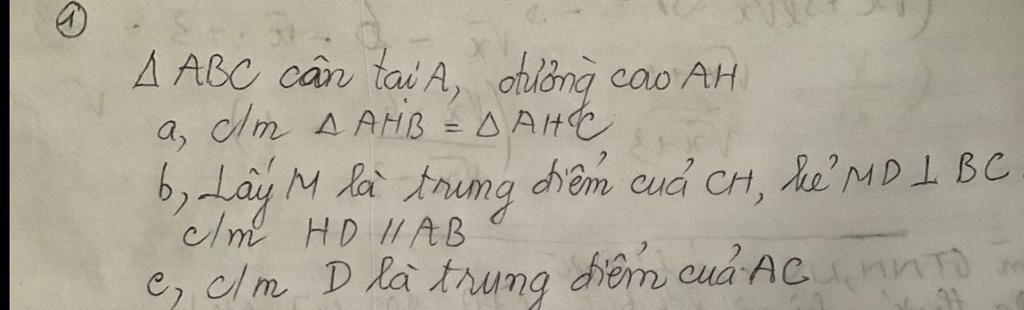 ①
Δ ABC cân tại A, đường cao AH
a, c/m Δ AHB = Δ AHC
b, Lấy M là trung điểm của CH, kẻ MD ⊥ BC
c/m HD // AB
c, c/m D là trung điểm của AC